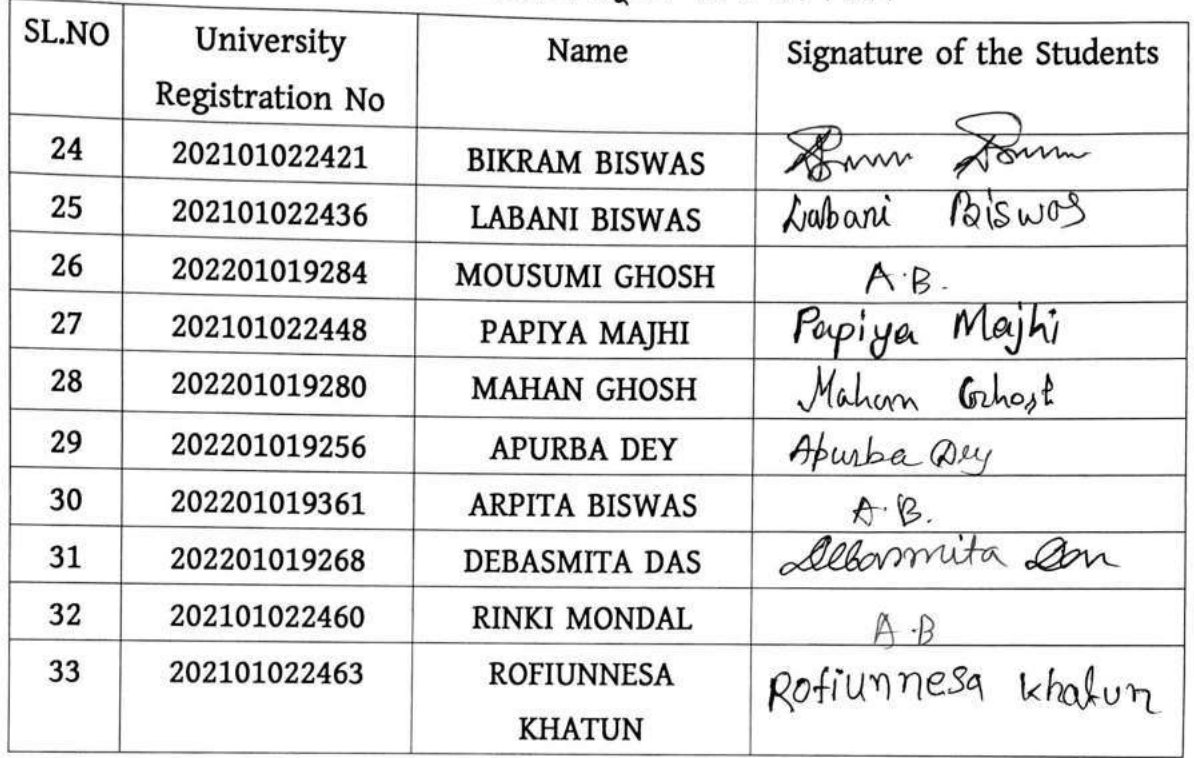 SL.NO University Registration No Name Signature of the Students
24 202101022421 BIKRAM BISWAS
25 202101022436 LABANI BISWAS Labani Biswas
26 202201019284 MOUSUMI GHOSH A.B.
27 202101022448 PAPIYA MAJHI Papiya Majhi
28 202201019280 MAHAN GHOSH Mahan Ghosh
29 202201019256 APURBA DEY Apurba Dey
30 202201019361 ARPITA BISWAS A.B.
31 202201019268 DEBASMITA DAS Debasmita Das
32 202101022460 RINKI MONDAL A.B
33 202101022463 ROFIUNNESA KHATUN Rofiunnesa Khatun